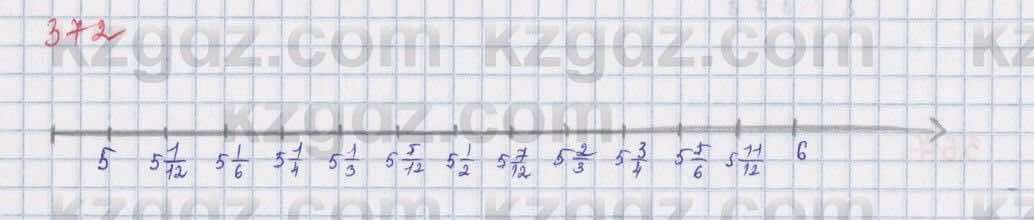 kzgdz.com kzgdz.com kz
372
kzgdz.com
5 5 1/12 5 1/6 5 1/4 5 1/3 5 5/12 5 1/2 5 7/12 5 2/3 5 3/4 5 5/6 5 11/12 6
kzgdz.com kzgdz.com kz